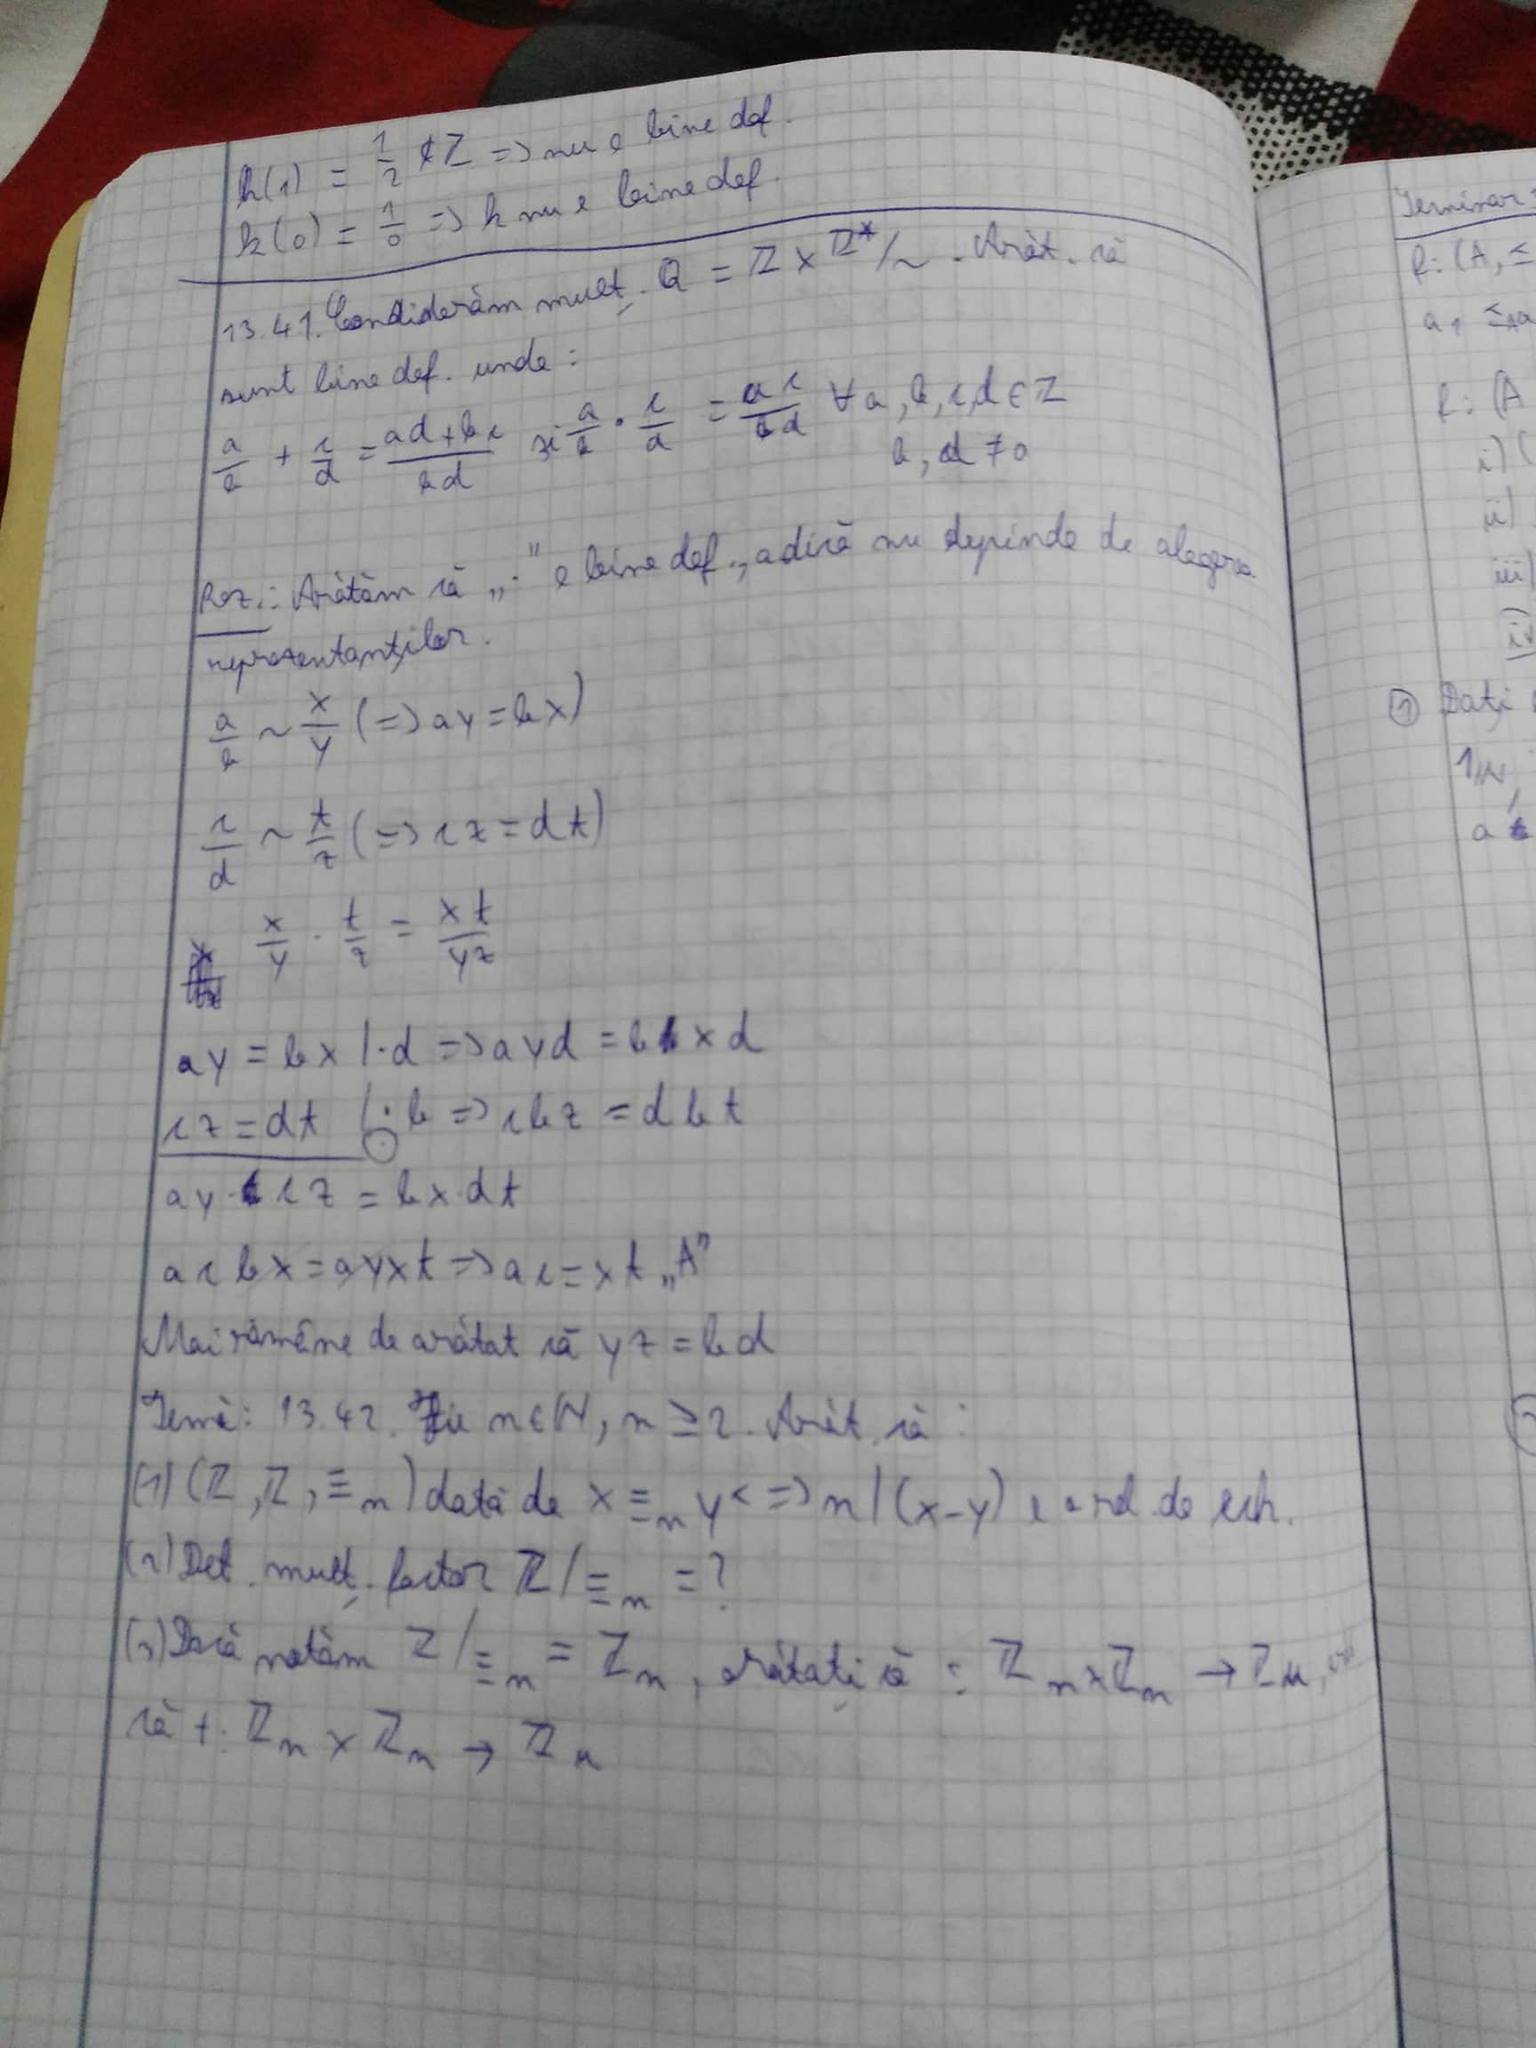 h(1) = 1/2 ∉ Z => nu e bine def.
k(0) = 1/0 => k nu e bine def.
13.41. Considerăm mulț. Q = Z x Z*/~. Arăt. că
sunt bine def. unde:
a/b + c/d = ad+bc/bd și a/b · c/d = ac/bd ∀a,b,c,d ∈ Z
b, d ≠ 0
Rez.: Arătăm că „·" e bine def., adică nu depinde de alegerea
reprezentanților.
a/b ~ x/y (=> ay = bx)
c/d ~ t/z (=> cz = dt)
x/y · t/z = xt/yz
ay = bx | ·d => ayd = bxd
cz = dt | ·b => cbz = dbt
ay · cz = bx·dt
acbx = ayxt => ac = xt „A"
Mai rămâne de arătat că yz = bd
Temă: 13.42. Fie n ∈ N, n ≥ 2. Arăt. că:
(1) (Z, Z, ≡n) dată de x ≡n y <=> n | (x-y) e o rel. de ech.
(2) Det. mulț. factor Z/≡n = ?
(3) Dacă notăm Z/≡n = Zn, arătați că : Zn x Zn → Zn,
că +: Zn x Zn → Zn
Seminar
R: (A, ≤
a1 ≤A a
R: (A
i) (
ii)
iii)
① Dați
1N,
a